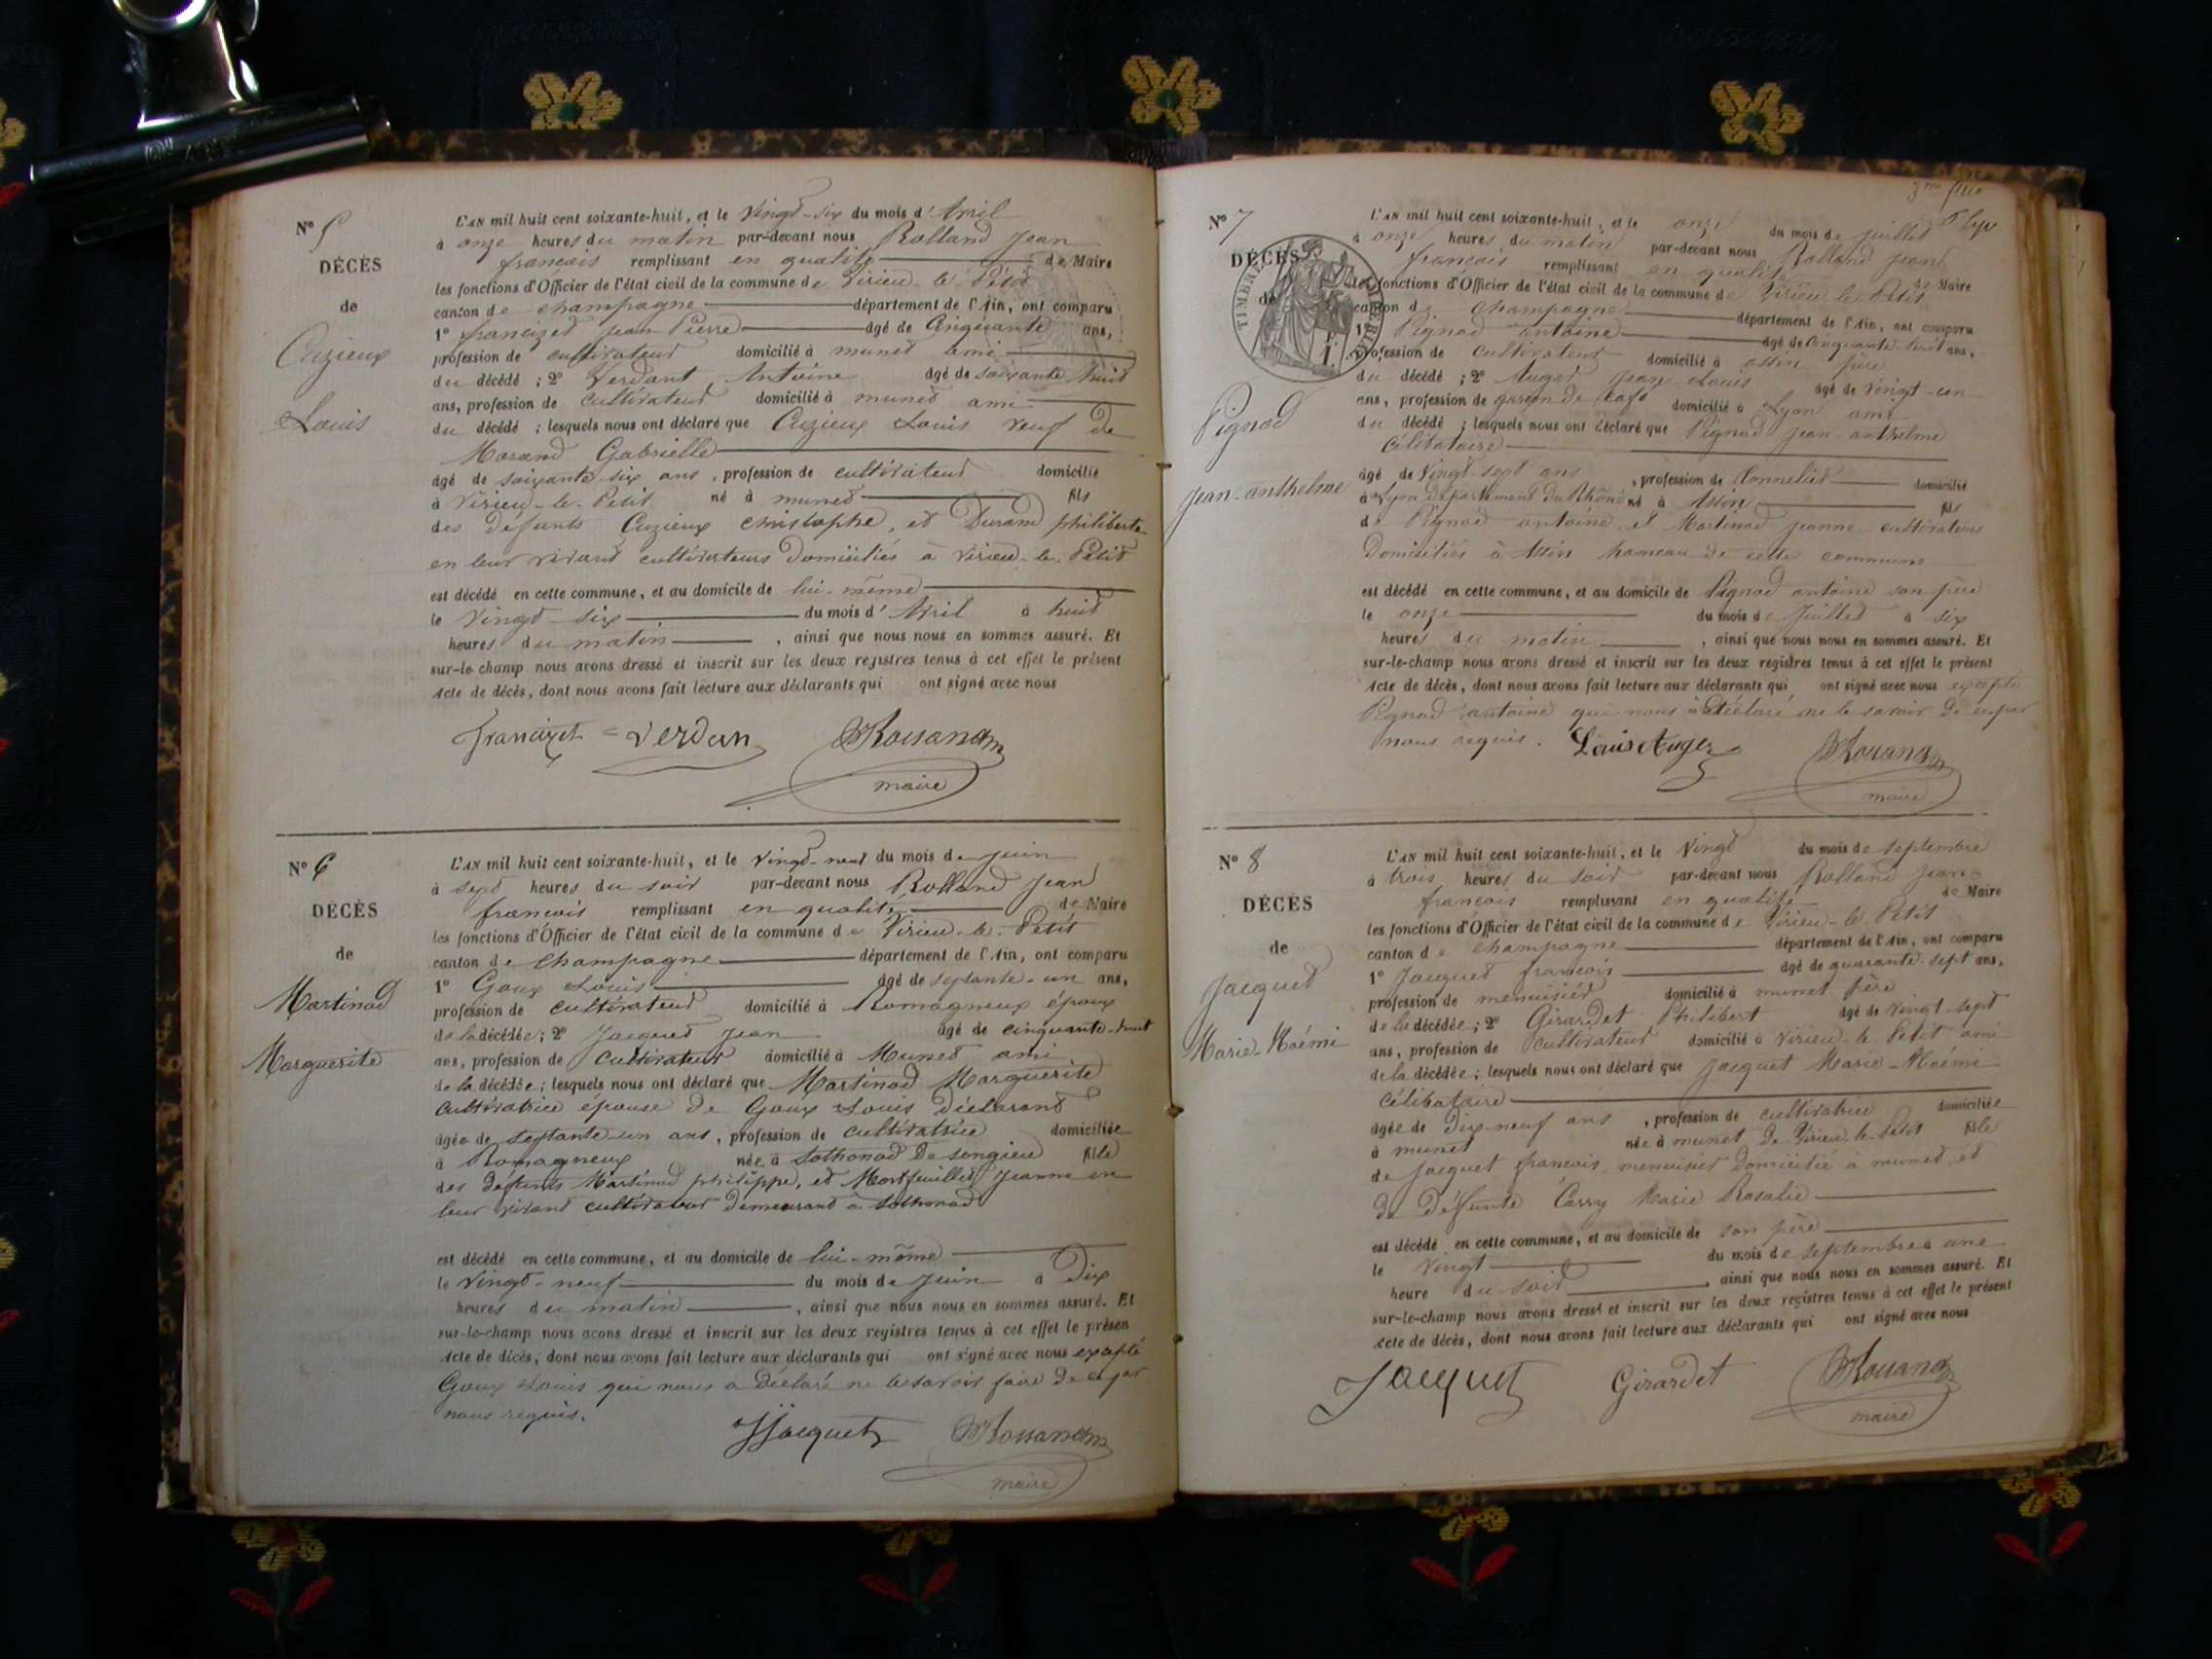 N° 5
DÉCÈS
de
Cuzieux
Louis
L'AN mil huit cent soixante-huit, et le Vingt-six du mois d'Avril
à onze heures du matin par-devant nous Rolland Jean
françois remplissant en qualité de Maire
les fonctions d'Officier de l'état civil de la commune de Virieu-le-Petit
canton de champagne département de l'Ain, ont comparu
1° francizet Jean Pierre âgé de Cinquante ans,
profession de cultivateur domicilié à munet ami
du décédé ; 2° Verdant Antoine âgé de soixante huit
ans, profession de cultivateur domicilié à munet ami
du décédé ; lesquels nous ont déclaré que Cuzieux Louis veuf de
Morand Gabrielle
âgé de soixante-six ans, profession de cultivateur domicilié
à Virieu-le-Petit né à munet fils
des défunts Cuzieux christophe, et Durand philiberte
en leur vivant cultivateurs domiciliés à Virieu-le-Petit
est décédé en cette commune, et au domicile de lui-même
le vingt-six du mois d'Avril à huit
heures du matin, ainsi que nous nous en sommes assuré. Et
sur-le-champ nous avons dressé et inscrit sur les deux registres tenus à cet effet le présent
Acte de décès, dont nous avons fait lecture aux déclarants qui ont signé avec nous
Francizet Verdan
maire
N° 6
DÉCÈS
de
Martinod
Marguerite
L'AN mil huit cent soixante-huit, et le vingt-neuf du mois de juin
à sept heures du soir par-devant nous Rolland Jean
françois remplissant en qualité de Maire
les fonctions d'Officier de l'état civil de la commune de Virieu-le-Petit
canton de champagne département de l'Ain, ont comparu
1° Goux Louis âgé de septante-un ans,
profession de cultivateur domicilié à Romagneux époux
de la décédée ; 2° Jacquet Jean âgé de cinquante-huit
ans, profession de cultivateur domicilié à Munet ami
de la décédée ; lesquels nous ont déclaré que Martinod Marguerite
cultivatrice épouse de Goux Louis déclarant
âgée de septante-un ans, profession de cultivatrice domiciliée
à Romagneux née à Sothonod de Songieu fille
des défunts Martinod philippe, et Montfeuillet Jeanne en
leur vivant cultivateur demeurant à Sothonod
est décédé en cette commune, et au domicile de lui-même
le vingt-neuf du mois de juin à dix
heures du matin, ainsi que nous nous en sommes assuré. Et
sur-le-champ nous avons dressé et inscrit sur les deux registres tenus à cet effet le présen
Acte de décès, dont nous avons fait lecture aux déclarants qui ont signé avec nous excepté
Goux Louis qui nous a déclaré ne le savoir faire de ce par
nous requis.
JJacquet
maire
N° 7
DÉCÈS
de
Pignod
Jean-anthelme
L'AN mil huit cent soixante-huit, et le onze du mois de juillet
à onze heures du matin par-devant nous Rolland Jean
françois remplissant en qualité de Maire
les fonctions d'Officier de l'état civil de la commune de Virieu-le-Petit
canton de champagne département de l'Ain, ont comparu
1° Pignod antoine âgé de Cinquante-huit ans,
profession de cultivateur domicilié à assin père
du décédé ; 2° Auger Jean Louis âgé de vingt-un
ans, profession de garçon de café domicilié à Lyon ami
du décédé ; lesquels nous ont déclaré que Pignod Jean anthelme
célibataire
âgé de vingt-sept ans, profession de Tonnelier domicilié
à Lyon département du Rhône né à Assin fils
de Pignod antoine, et Martinod Jeanne cultivateurs
domiciliés à Assin hameau de cette commune
est décédé en cette commune, et au domicile de Pignod antoine son père
le onze du mois de Juillet à six
heures du matin, ainsi que nous nous en sommes assuré. Et
sur-le-champ nous avons dressé et inscrit sur les deux registres tenus à cet effet le présent
Acte de décès, dont nous avons fait lecture aux déclarants qui ont signé avec nous excepté
Pignod antoine qui nous a déclaré ne le savoir de ce par
nous requis. Louis Auger
maire
N° 8
DÉCÈS
de
Jacquet
Marie-Noémi
L'AN mil huit cent soixante-huit, et le vingt du mois de septembre
à trois heures du soir par-devant nous Rolland Jean-
françois remplissant en qualité de Maire
les fonctions d'Officier de l'état civil de la commune de Virieu-le-Petit
canton de champagne département de l'Ain, ont comparu
1° Jacquet françois âgé de quarante-sept ans,
profession de menuisier domicilié à munet père
de la décédée ; 2° Girardet Philibert âgé de vingt-sept
ans, profession de cultivateur domicilié à Virieu-le-Petit ami
de la décédée ; lesquels nous ont déclaré que Jacquet Marie-Noémi
célibataire
âgée de dix-neuf ans, profession de cultivatrice domiciliée
à munet née à munet de Virieu-le-Petit fille
de Jacquet françois, menuisier domicilié à munet, et
de défunte Carry Marie Rosalie
est décédé en cette commune, et au domicile de son père
le vingt du mois de septembre à une
heure du soir, ainsi que nous nous en sommes assuré. Et
sur-le-champ nous avons dressé et inscrit sur les deux registres tenus à cet effet le présent
Acte de décès, dont nous avons fait lecture aux déclarants qui ont signé avec nous
Jacquet Girardet
maire